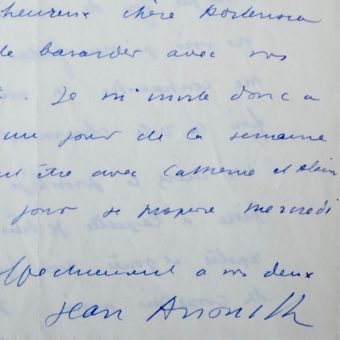 heureux chère Hortensia
de bavarder avec vos
. Je m'invite donc a
un jour de la semaine
ut être avec Catherine et Alain
jour je propose mercredi
ffectueusement a vos deux
Jean Anouilh